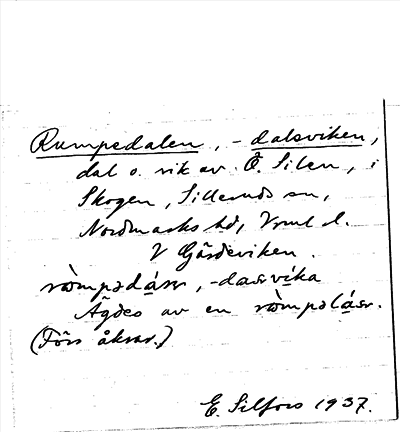 Rumpedalen, -dalsviken,
dal o. vik av Ö. Silen, i
Skogen, Sillerud sn,
Nordmarks hd, Vrml l.
V Gårdeviken.
-dasvika
Ägdes av en
(Förr åkrar.)
E. Silfors 1937.